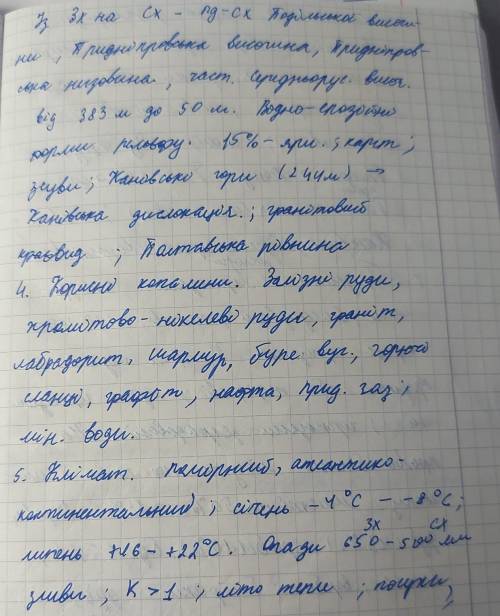 Із Зх на Сх – Пд-Сх Подільська височи-
ни, Придніпровська височина, Придніпров-
ська низовина, част. Середньорус. височ.
від 383 м до 50 м. Водно-ерозійні
форми рельєфу. 15% – яри.; карст;
зсуви; Канівські гори (244м) →
Канівська дислокація.; гранітовий
краєвид; Полтавська рівнина
4. Корисні копалини. Залізні руди,
хромітово-нікелеві руди, граніт,
лабрадорит, мармур, буре вуг., горючі
сланці, графіт, нафта, прир. газ;
мін. води.
5. Клімат. помірний, атлантико-
континентальний; січень -4°С – -8°С;
липень +26 – +22°С. Опади 650 Зх – 500 мм Сх
зливи; К > 1; літо тепле; посухи,